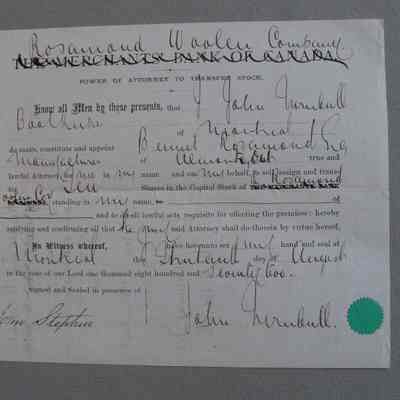 Rosamond Woolen Company
THE MERCHANTS BANK OF CANADA,
POWER OF ATTORNEY TO TRANSFER STOCK.
Know all Men by these presents, that I John Turnbull
of Montreal
do make, constitute and appoint Bennet Rosamond Esq
Manufacturer of Almonte, Ont true and
lawful Attorney, for me in my name and on my behalf, to sell assign and transfer
Ten Shares in the Capital Stock of the Rosamond
standing in my name of
and to do all lawful acts requisite for effecting the premises: hereby
ratifying and confirming all that he my said Attorney shall do therein by virtue hereof,
In Witness whereof, I have hereunto set my hand and seal at
Montreal the day of August
in the year of our Lord one thousand eight hundred and Seventy two.
signed and Sealed in presence of
Stephen John Turnbull.